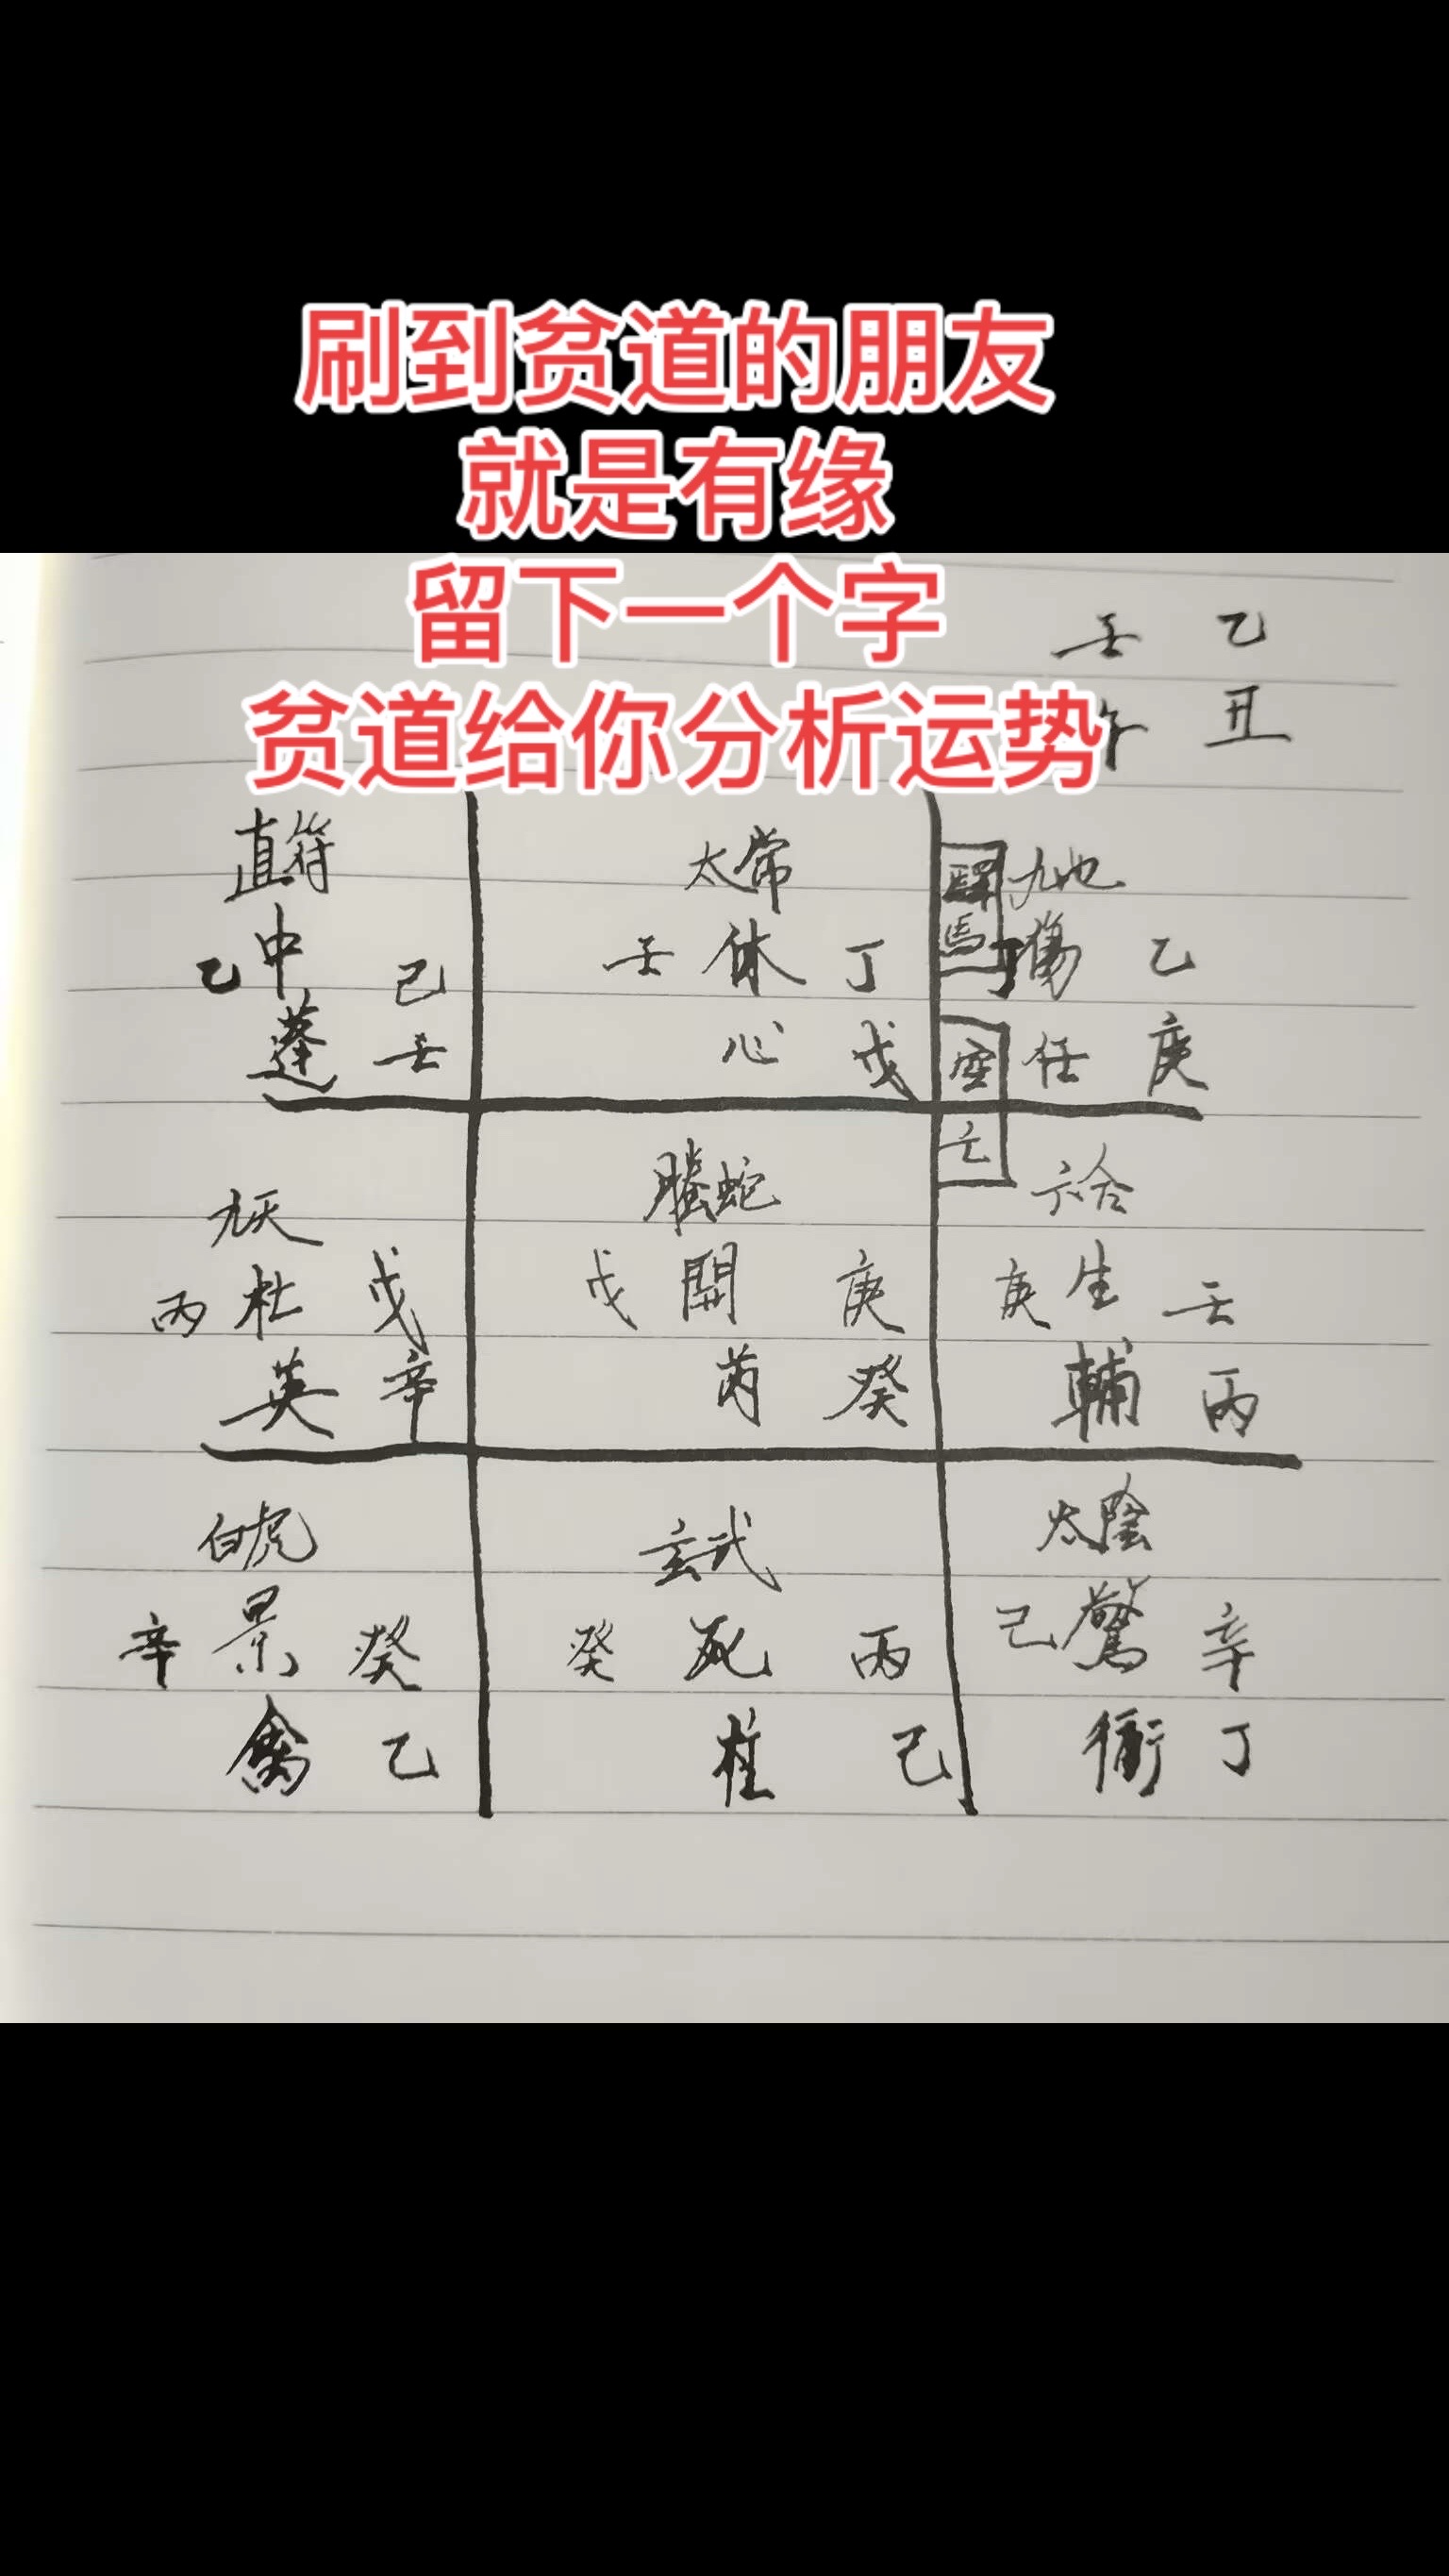 刷到贫道的朋友
就是有缘
留下一个字
贫道给你分析运势
壬 乙
午 丑
直符
乙 中 己
蓬 壬
太常
壬 休 丁
心 戊
驛馬
九地
丁 傷 乙
空亡
任 庚
九天
丙 杜 戊
英 辛
螣蛇
戊 開 庚
芮 癸
六合
庚 生 壬
輔 丙
白虎
辛 景 癸
禽 乙
玄武
癸 死 丙
柱 己
太陰
己 驚 辛
衝 丁